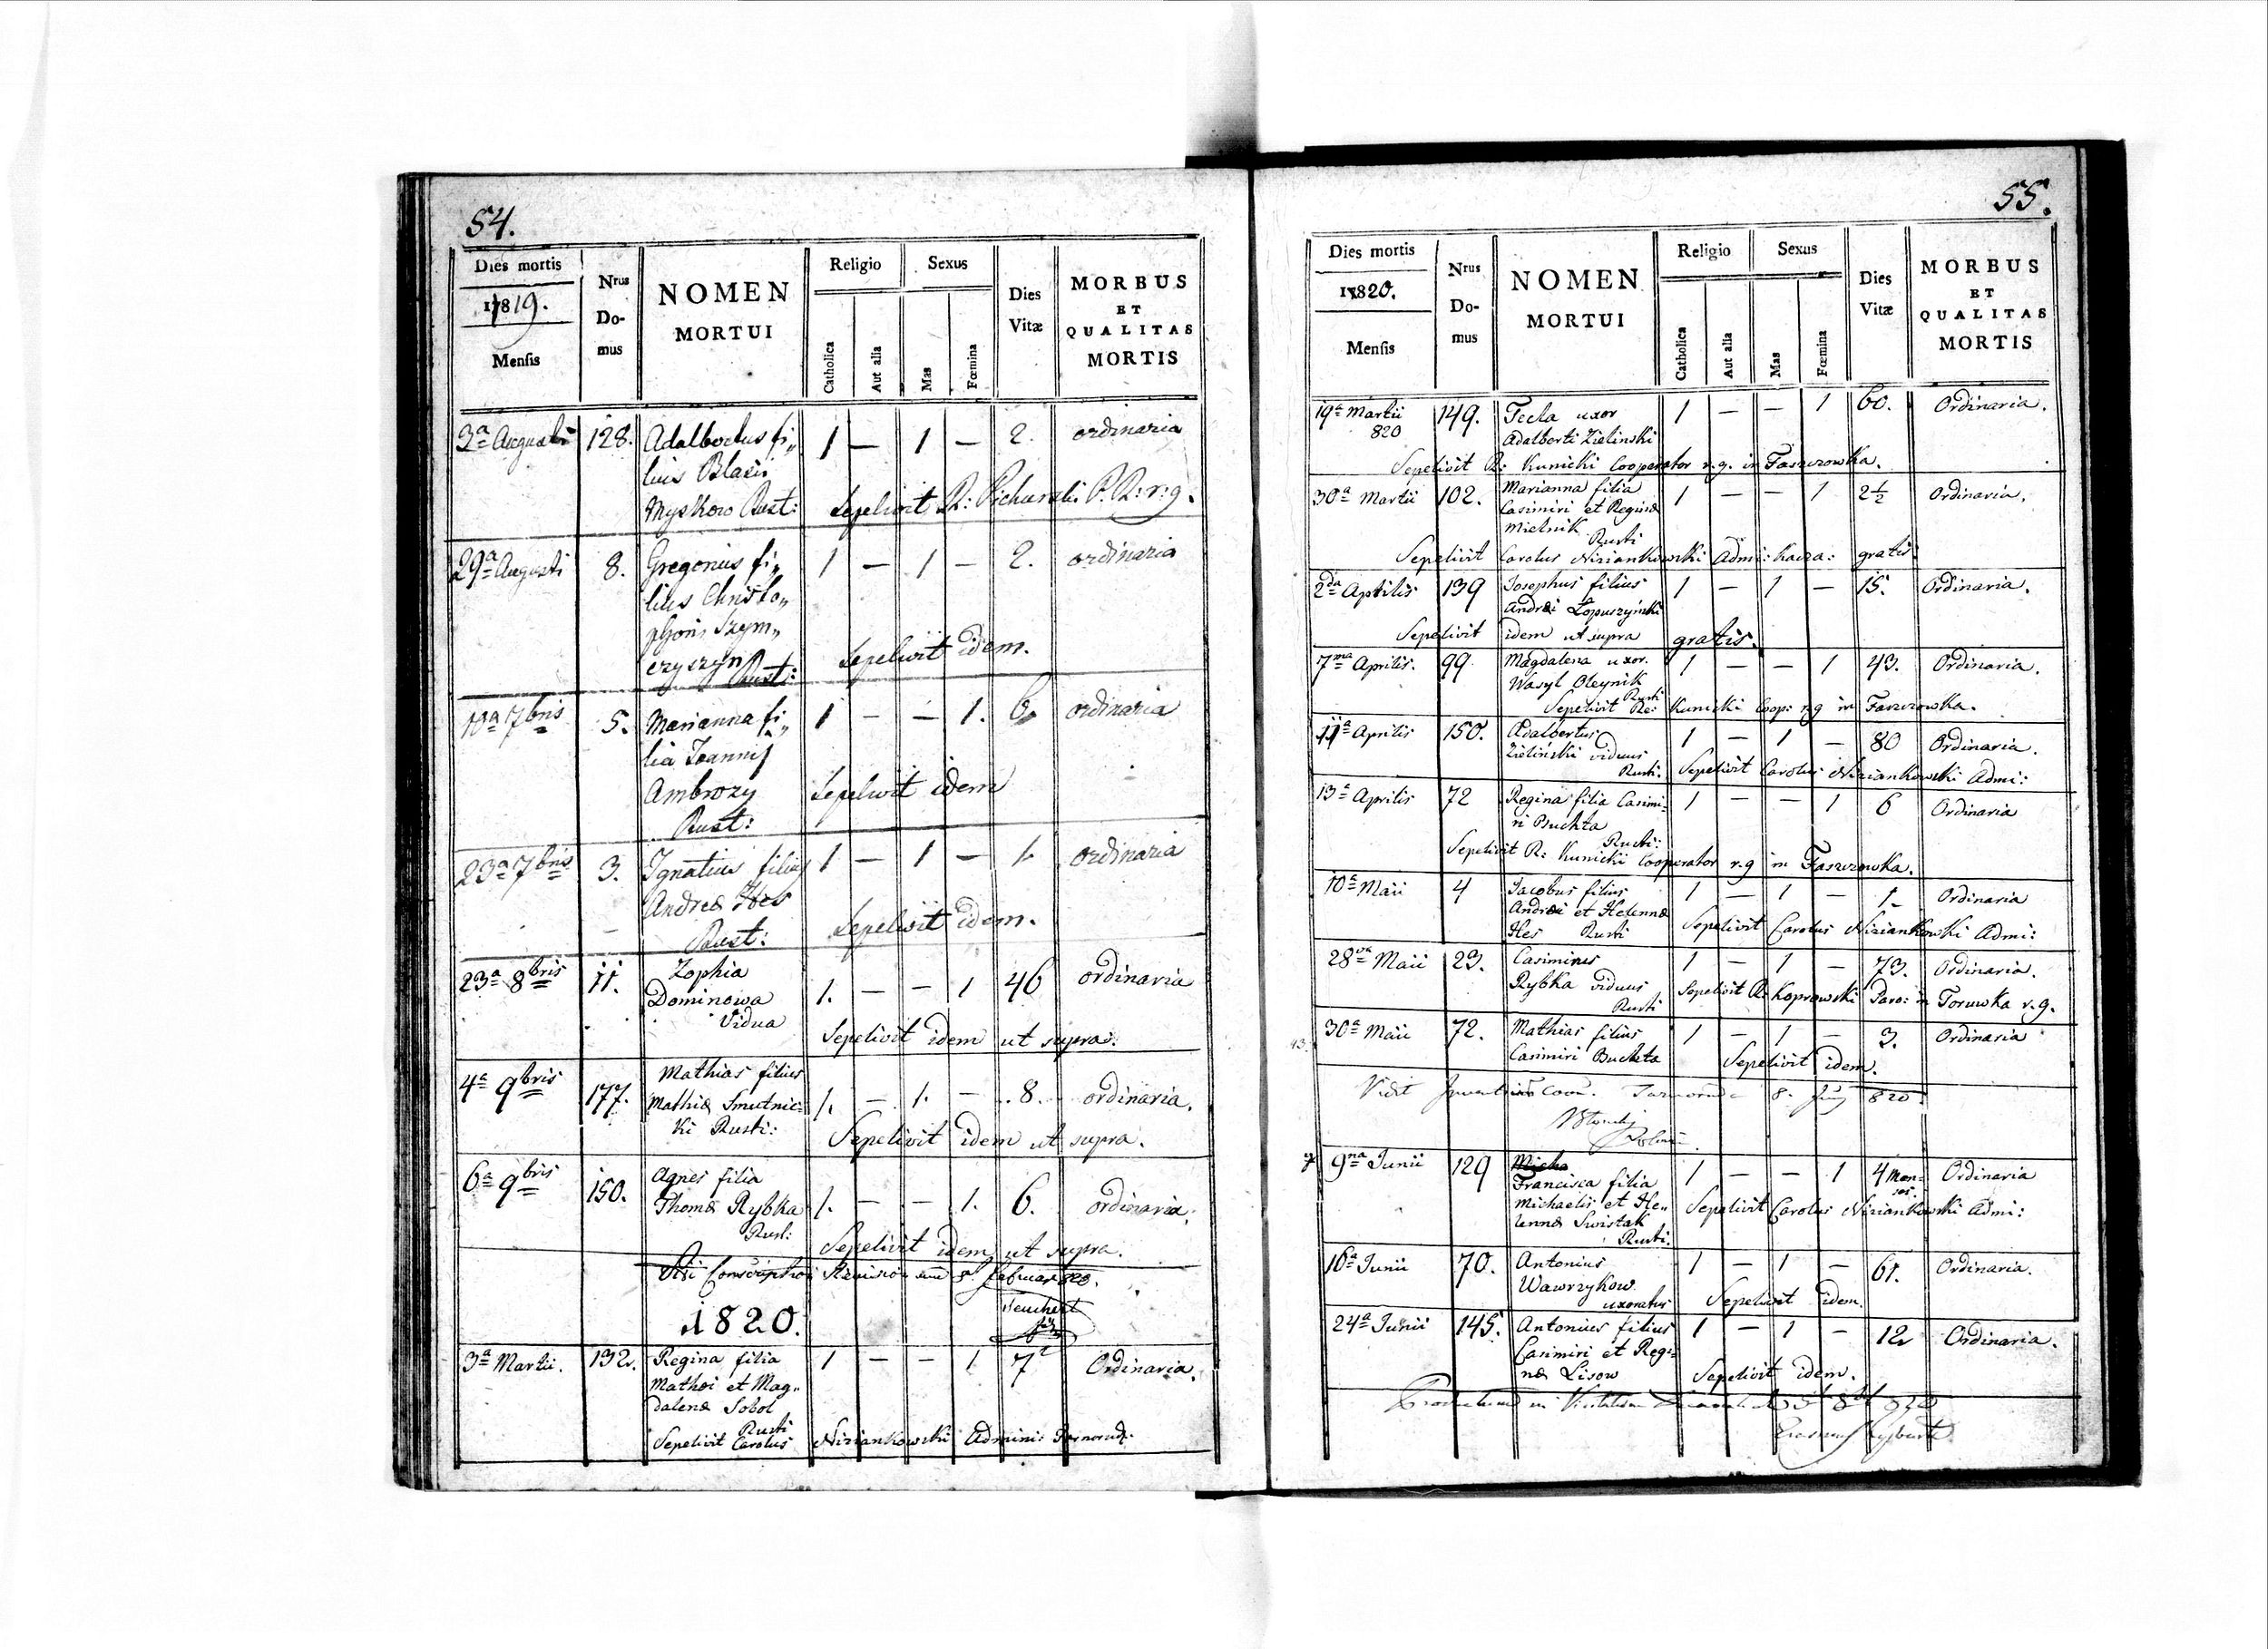 54.
Dies mortis
1819.
Mensis
Nrus
Do-
mus
NOMEN
MORTUI
Religio
Catholica
Aut alia
Sexus
Mas
Fœmina
Dies
Vitæ
MORBUS
ET
QUALITAS
MORTIS
3a Augusti 128. Adalbertus fi„ 1 — 1 — 2. ordinaria
lius Blasii
Myskow Rust: Sepelivit R: Pichurski P. R: r: g.
29a Augusti 8. Gregorius fi„ 1 — 1 — 2. ordinaria
lius Christo„
phori Szym„
czyszyn Sepelivit idem.
Rust:
10a 7bris 5. Marianna fi„ 1 — — 1. 6 ordinaria
lia Joannis
Ambrozy Sepelivit idem
Rust:
23a 7bris 3. Ignatius filius 1 — 1 — 1 ordinaria
Andreæ Hes Sepelivit idem.
Rust:
23a 8bris 11. Zophia
Dominowa 1. — — 1 46 ordinaria
Vidua
Sepelivit idem ut supra.
4a 9bris 177. Mathias filius
Mathiæ Smutnic= 1. — 1. — 8. ordinaria.
ki Rusti: Sepelivit idem ut supra.
6a 9bris 150. Agnes filia
Thomæ Rybka 1. — — 1. 6. ordinaria.
Rust:
Sepelivit idem ut supra.
Februar 820.
1820.
3a Martii. 132. Regina filia 1 — — 1 7 Ordinaria.
Mathæi et Mag„
dalenæ Sobol
Rusti
Sepelivit Carolus Niziankowski Admini:
55.
Dies mortis
1820.
Mensis
Nrus
Do-
mus
NOMEN
MORTUI
Religio
Catholica
Aut alia
Sexus
Mas
Fœmina
Dies
Vitæ
MORBUS
ET
QUALITAS
MORTIS
19a Martii 149. Tecla uxor 1 — — 1 60. Ordinaria.
820 Adalberti Zielinski
Sepelivit R: Kunicki Cooperator r.g. in Faszczowka.
30a Martii 102. Marianna filia 1 — — 1 2½ Ordinaria.
Casimiri et Reginæ
Mielnik
Rusti
Sepelivit Carolus Niziankowski Admi: gratis
2da Aprilis 139 Josephus filius 1 — 1 — 15. Ordinaria.
Andræi Łopuszyński
Sepelivit idem ut supra gratis.
7ma Aprilis. 99. Magdalena uxor. 1 — — 1 43. Ordinaria.
Wasyl Oleynik
Rusti
Sepelivit Re: Kunicki Coop: r.g in Faszczowka.
11a Aprilis 150. Adalbertus 1 — 1 — 80 Ordinaria.
Zieliński viduus
Rusti. Sepelivit Carolus Niziankowski Admi:
13a Aprilis 72 Regina filia Casimi= 1 — — 1 6 Ordinaria
ri Buchta
Rusti:
Sepelivit R: Kunicki Cooperator r.g in Faszczowka.
10a Maii 4 Jacobus filius 1 — 1 — 1 Ordinaria
Andræi et Helennæ
Hes Rusti Sepelivit Carolus Niziankowski Admi:
28va Maii 23. Casimirus 1 — 1 — 73. Ordinaria.
Rybka viduus
Rusti Sepelivit R: Koprowski Paro: in Toruwka r.g.
30a Maii 72. Mathias filius 1 — 1 — 3. Ordinaria
Casimiri Buchta Sepelivit idem.
8. 820.
9na Junii 129 Micha
Francisca filia 1 — — 1 4 Men= Ordinaria
ses.
Michaelis et He„
lennæ Swistak Sepelivit Carolus Niziankowski Admi:
Rusti.
16a Junii 70. Antonius 1 — 1 — 61. Ordinaria.
Wawrzykow
uxoratus Sepelivit idem.
24a Junii 145. Antonius filius 1 — 1 — 12 Ordinaria.
Casimiri et Regi=
næ Lisow Sepelivit idem.